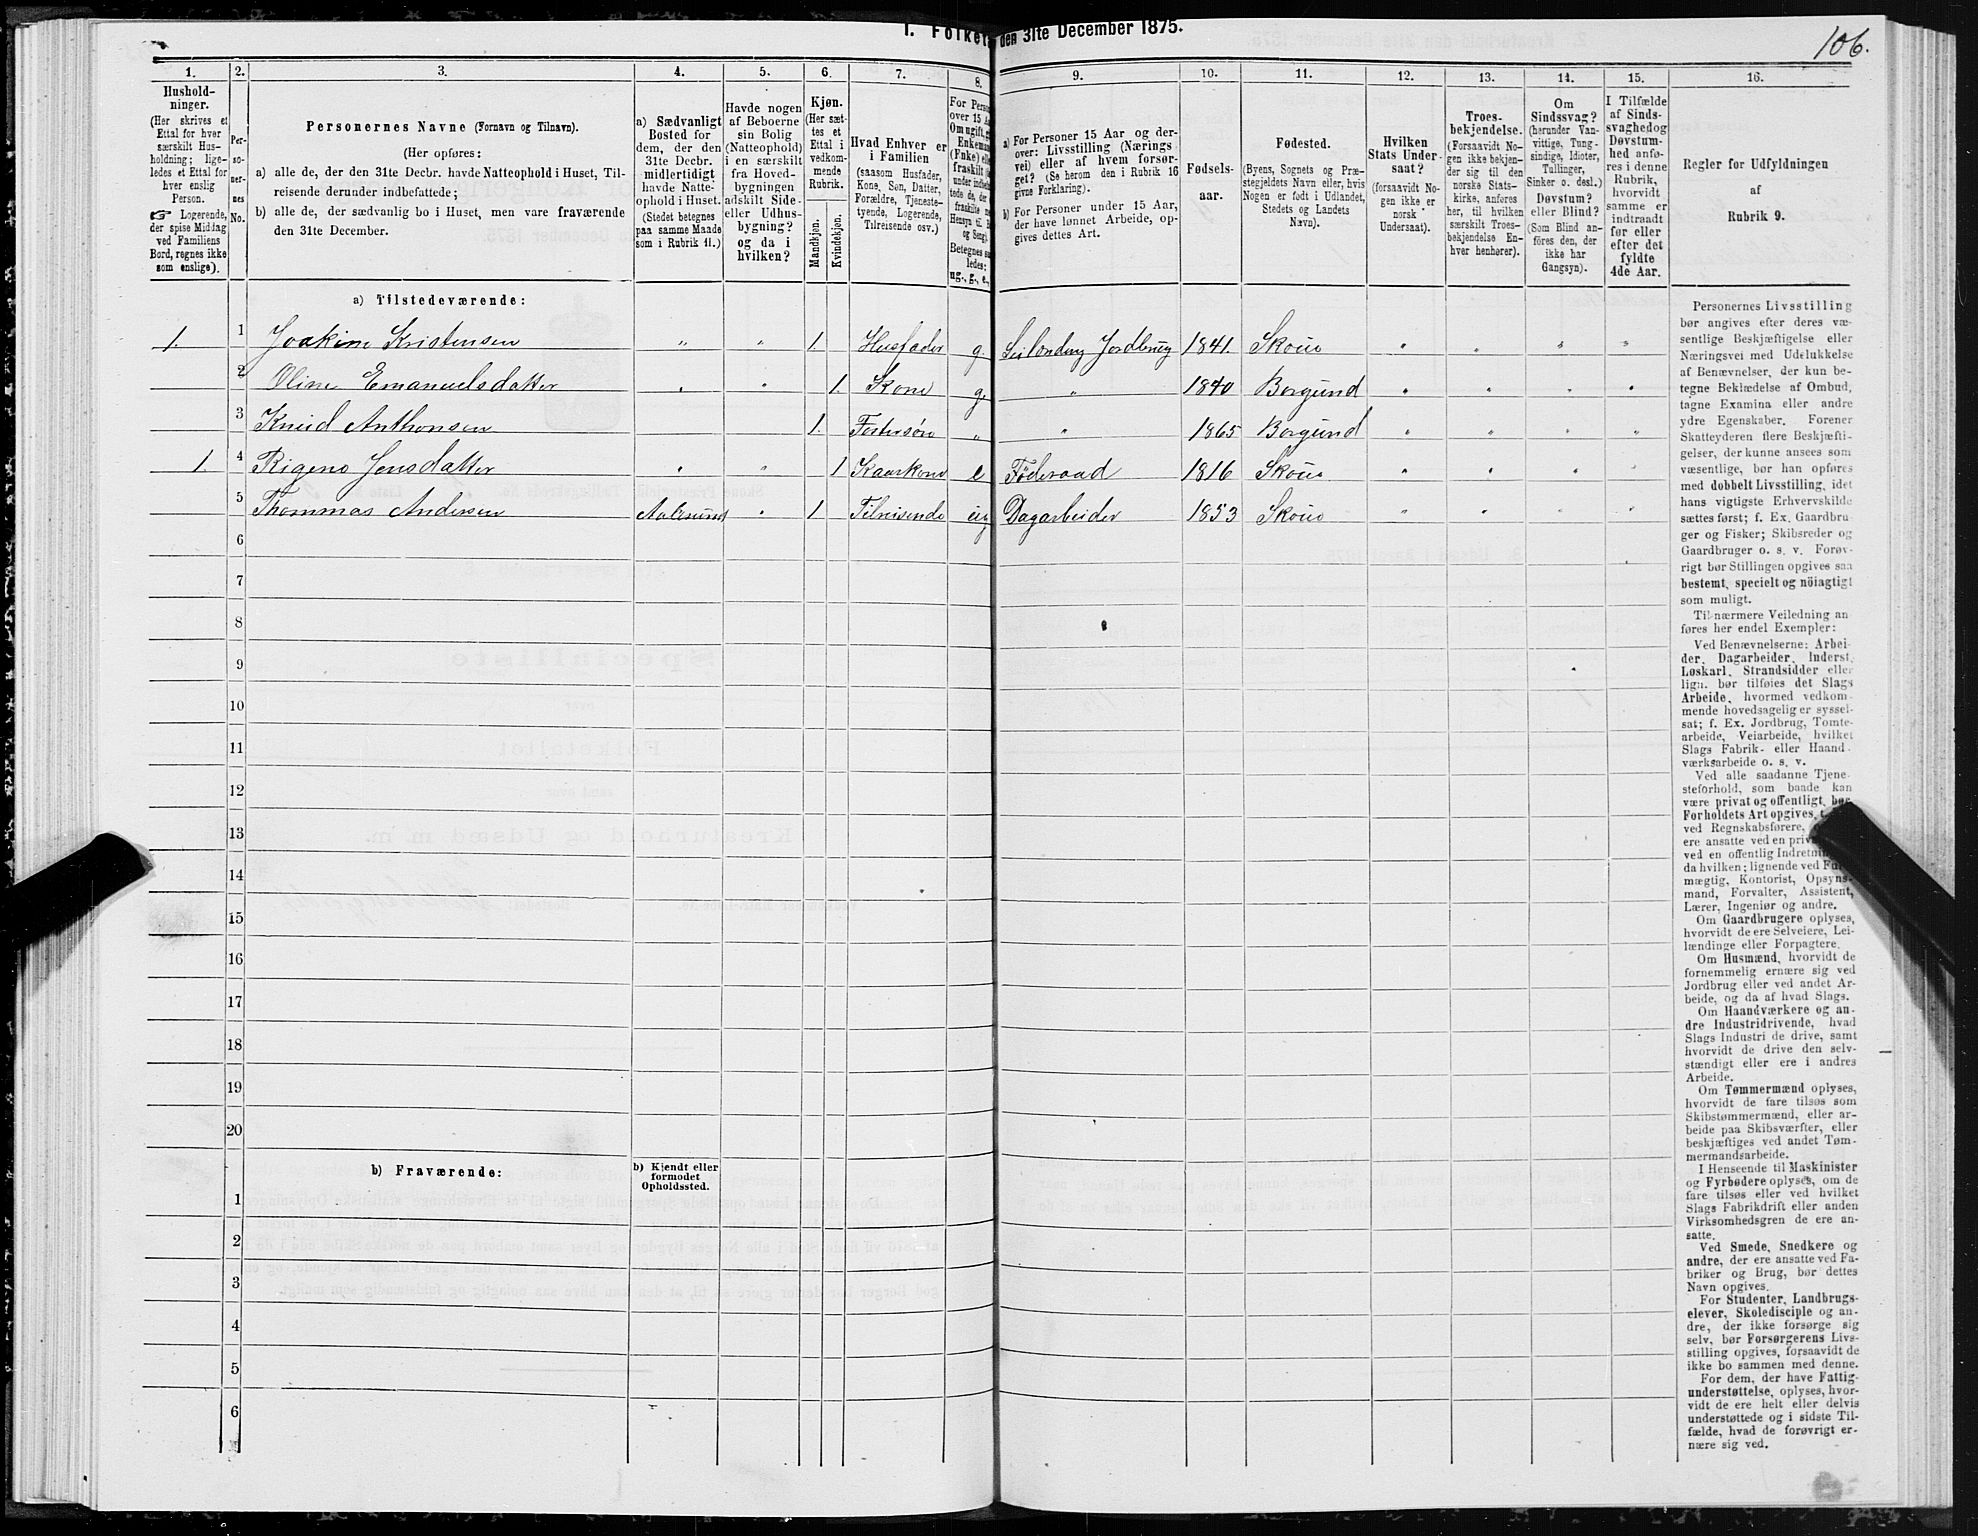 1. Folket
den 31te December 1875.
106.
1.
2.
3.
4.
5.
6.
7.
8.
9.
10.
11.
12.
13.
14.
15.
16.
Hushold-
ninger.
(Her skrives et
Ettal for hver
særskilt Hus-
holdning; lige-
ledes et Ettal for
hver enslig
Person.
☞ Logerende,
der spise Middag
ved Familiens
Bord, regnes ikke
som enslige).
Per-
so-
ner-
nes
No.
Personernes Navne (Fornavn og Tilnavn).
(Her opføres:
a) alle de, der den 31te Decbr. havde Natteophold i Huset, Til-
reisende derunder indbefattede;
b) alle de, der sædvanlig bo i Huset, men vare fraværende
den 31te December.
a) Sædvanligt
Bosted for
dem, der den
31te Decbr.
midlertidigt
havde Natte-
ophold i Huset.
(Stedet betegnes
paa samme Maade
som i Rubrik 11.)
Havde nogen
af Beboerne
sin Bolig
(Natteophold)
i en særskilt
fra Hoved-
bygningen
adskilt Side-
eller Udhus-
bygning?
og da i
hvilken?
Kjøn.
(Her sæt-
tes et
Ettal i
vedkom-
mende
Rubrik.
Mandkjøn.
Kvindekjøn.
Hvad Enhver er
i Familien
(saasom Husfader,
Kone, Søn, Datter,
Forældre, Tjeneste-
tyende, Logerende,
Tilreisende osv.)
For Perso
over 15 Aa
Om ugift, g
Enkeman
(Enke) elle
fraskilt (s
under indbe
tede de, der
fraskilte m
Hensyn til B
og Seng).
Betegnes sa
ledes:
ug., g., e.,
a) For Personer 15 Aar og der-
over: Livsstilling (Nærings
vei) eller af hvem forsør-
get? (Se herom den i Rubrik 16
givne Forklaring).
b) For Personer under 15 Aar,
der have lønnet Arbeide, op-
gives dettes Art.
Fødsels-
aar.
Fødested.
(Byens, Sognets og Præ-
stegjeldets Navn eller, hvis
Nogen er født i Udlandet,
Stedets og Landets
Navn).
Hvilken
Stats Under-
saat?
(forsaavidt No-
gen ikke er
norsk
Undersaat).
Troes-
bekjendelse.
(Forsaavidt No-
gen ikke bekjen-
der sig til den
norske Stats-
kirke, anføres
her, til hvilken
særskilt Troes-
bekjendelse En-
hver henhører).
Om
Sindssvag?
(herunder Van-
vittige, Tung-
sindige, Idioter,
Tullinger,
Sinker o. desl.)
Døvstum?
eller Blind?
(Som Blind an-
føres den, der
ikke har
Gangsyn).
I Tilfælde
af Sinds-
svaghedog
Døvstum-
hed anfø-
res i denne
Rubrik,
hvorvidt
samme er
indtraadt
før eller
efter det
fyldte
4de Aar.
Regler for Udfyldningen
af
Rubrik 9.
a) Tilstedeværende:
1 1 Joakim Kristensen " " 1. Husfader g. Leilænding Jordbrug 1841. Skoue " " " "
2 Oline Emanuelsdatter " " 1. Kone g. " 1840 Borgund " " " "
3 Knud Anthonsen 1. Fostersøn " " 1865 Borgund " " " "
1 4 Jensdatter " " 1 Kaarkone e Føderaad 1816 Skoue " " " "
5 Thommas Andersen Aalesund " 1 Tilreisende ug Dagarbeider 1853 Skoue " " " "
6
7
8
9
10
11
12
13
14
15
16
17
18
19
20
b) Fraværende:
b) Kjendt eller
formodet
Opholdssted.
1
2
3
4
5
6
Personernes Livsstilling
bør angives efter deres væ-
sentlige Beskjæftigelse eller
Næringsvei med Udelukkelse
af Benævnelser, der kun be-
tegne Beklædelse af Ombud,
tagne Examina eller andre
ydre Egenskaber. Forener
Skatteyderen flere Beskjæfti-
gelser, der kunne ansees som
væsentlige, bør han opføres
med dobbelt Livsstilling, idet
hans vigtigste Erhvervskilde
sættes først; f. Ex. Gaardbru-
ger og Fisker; Skibsreder og
Gaardbruger o. s. v. Forøv-
rigt bør Stillingen opgives saa
bestemt, specielt og nöiagtigt
som muligt.
Til nærmere Veiledning an
føres her endel Exempler:
Ved Benævnelserne: Arbei-
der, Dagarbeider, Inderst,
Løskarl, Strandsidder eller
lign. bør tilføies det Slags
Arbeide, hvormed vedkom-
mende hovedsagelig er syssel-
sat; f. Ex. Jordbrug, Tomte-
arbeide, Veiarbeide, hvilket
Slags Fabrik- eller Haand-
værksarbeide o. s. v.
Ved alle saadanne Tjene-
steforhold, som baade kan
være privat og offentligt, bør
Forholdets Art opgives,
ved Regnskabsførere,
ere ansatte ved en priv
ved en offentlig Indretnin
da hvilken; lignende ved Ful
mægtig, Kontorist, Opsyns-
mand, Forvalter, Assistent,
Lærer, Ingeniør og andre.
Om Gaardbrugere oplyses,
hvorvidt de ere Selveiere, Lei-
lændinge eller Forpagtere.
Om Husmænd, hvorvidt de
fornemmelig ernære sig ved
Jordbrug eller ved andet Ar-
beide, og da af hvad Slags.
Om Haandværkere og an-
dre Industridrivende, hvad
Slags Industri de drive, samt
hvorvidt de drive den selv-
stændigt eller ere i andres
Arbeide.
Om Tømmermænd oplyses,
hvorvidt de fare tilsøs som
Skibstømmermænd, eller ar-
beide paa Skibsværfter, eller
beskjæftiges ved andet Tøm-
mermandsarbeide.
I Henseende til Maskinister
og Fyrbødere oplyses, om de
fare tilsøs eller ved hvilket
Slags Fabrikdrift eller anden
Virksomhedsgren de ere an-
satte.
Ved Smede, Snedkere og
andre, der ere ansatte ved Fa-
briker og Brug, bør dettes
Navn opgives.
For Studenter, Landbrugs-
elever, Skoledisciple og an-
dre, der ikke forsørge sig
selv, bør Forsørgerens Livs-
stilling opgives, forsaavidt de
ikke bo sammen med denne.
For dem, der have Fattig-
understøttelse, oplyses, hvor-
vidt de ere helt eller delvis
understøttede og i sidste Til-
fælde, hvad de forøvrigt er-
nære sig ved.